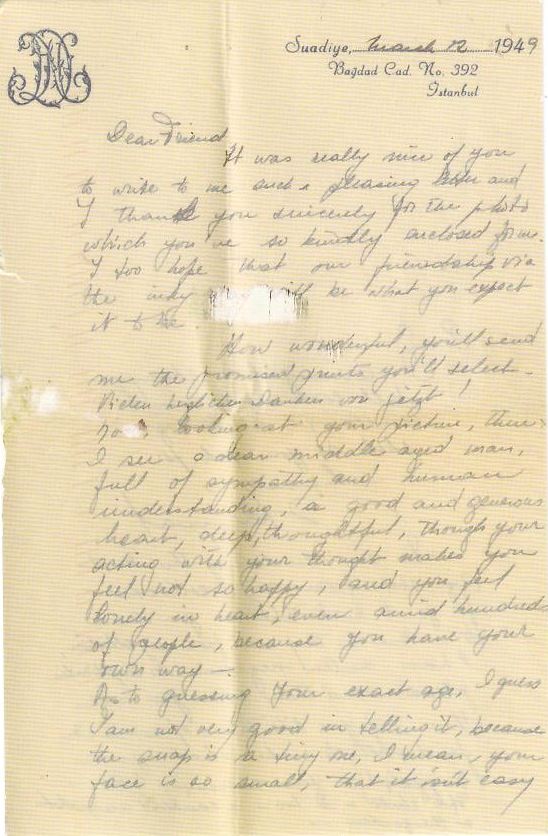 Suadiye, March 12 1949
Bağdad Cad. No. 392
İstanbul
Dear Friend
It was really nice of you
to write to me such a pleasing letter and
I thank you sincerely for the photo
which you've so kindly enclosed for me.
I too hope that our friendship via
the inky way will be what you expect
it to be.
How wonderful, you'll send
me the promised prints you'll select.
Vielen herzlichen Danken von jetzt!
looking at your picture, there
I see a dear middle aged man,
full of sympathy and human
understanding, a good and generous
heart, deep, thoughtful, though your
acting with your thought makes you
feel not so happy, and you feel
lonely in heart, even amid hundreds
of people, because you have your
own way —
As to guessing your exact age, I guess
I am not very good in telling it, because
the snap is a tiny one, I mean, your
face is so small, that it isn't easy